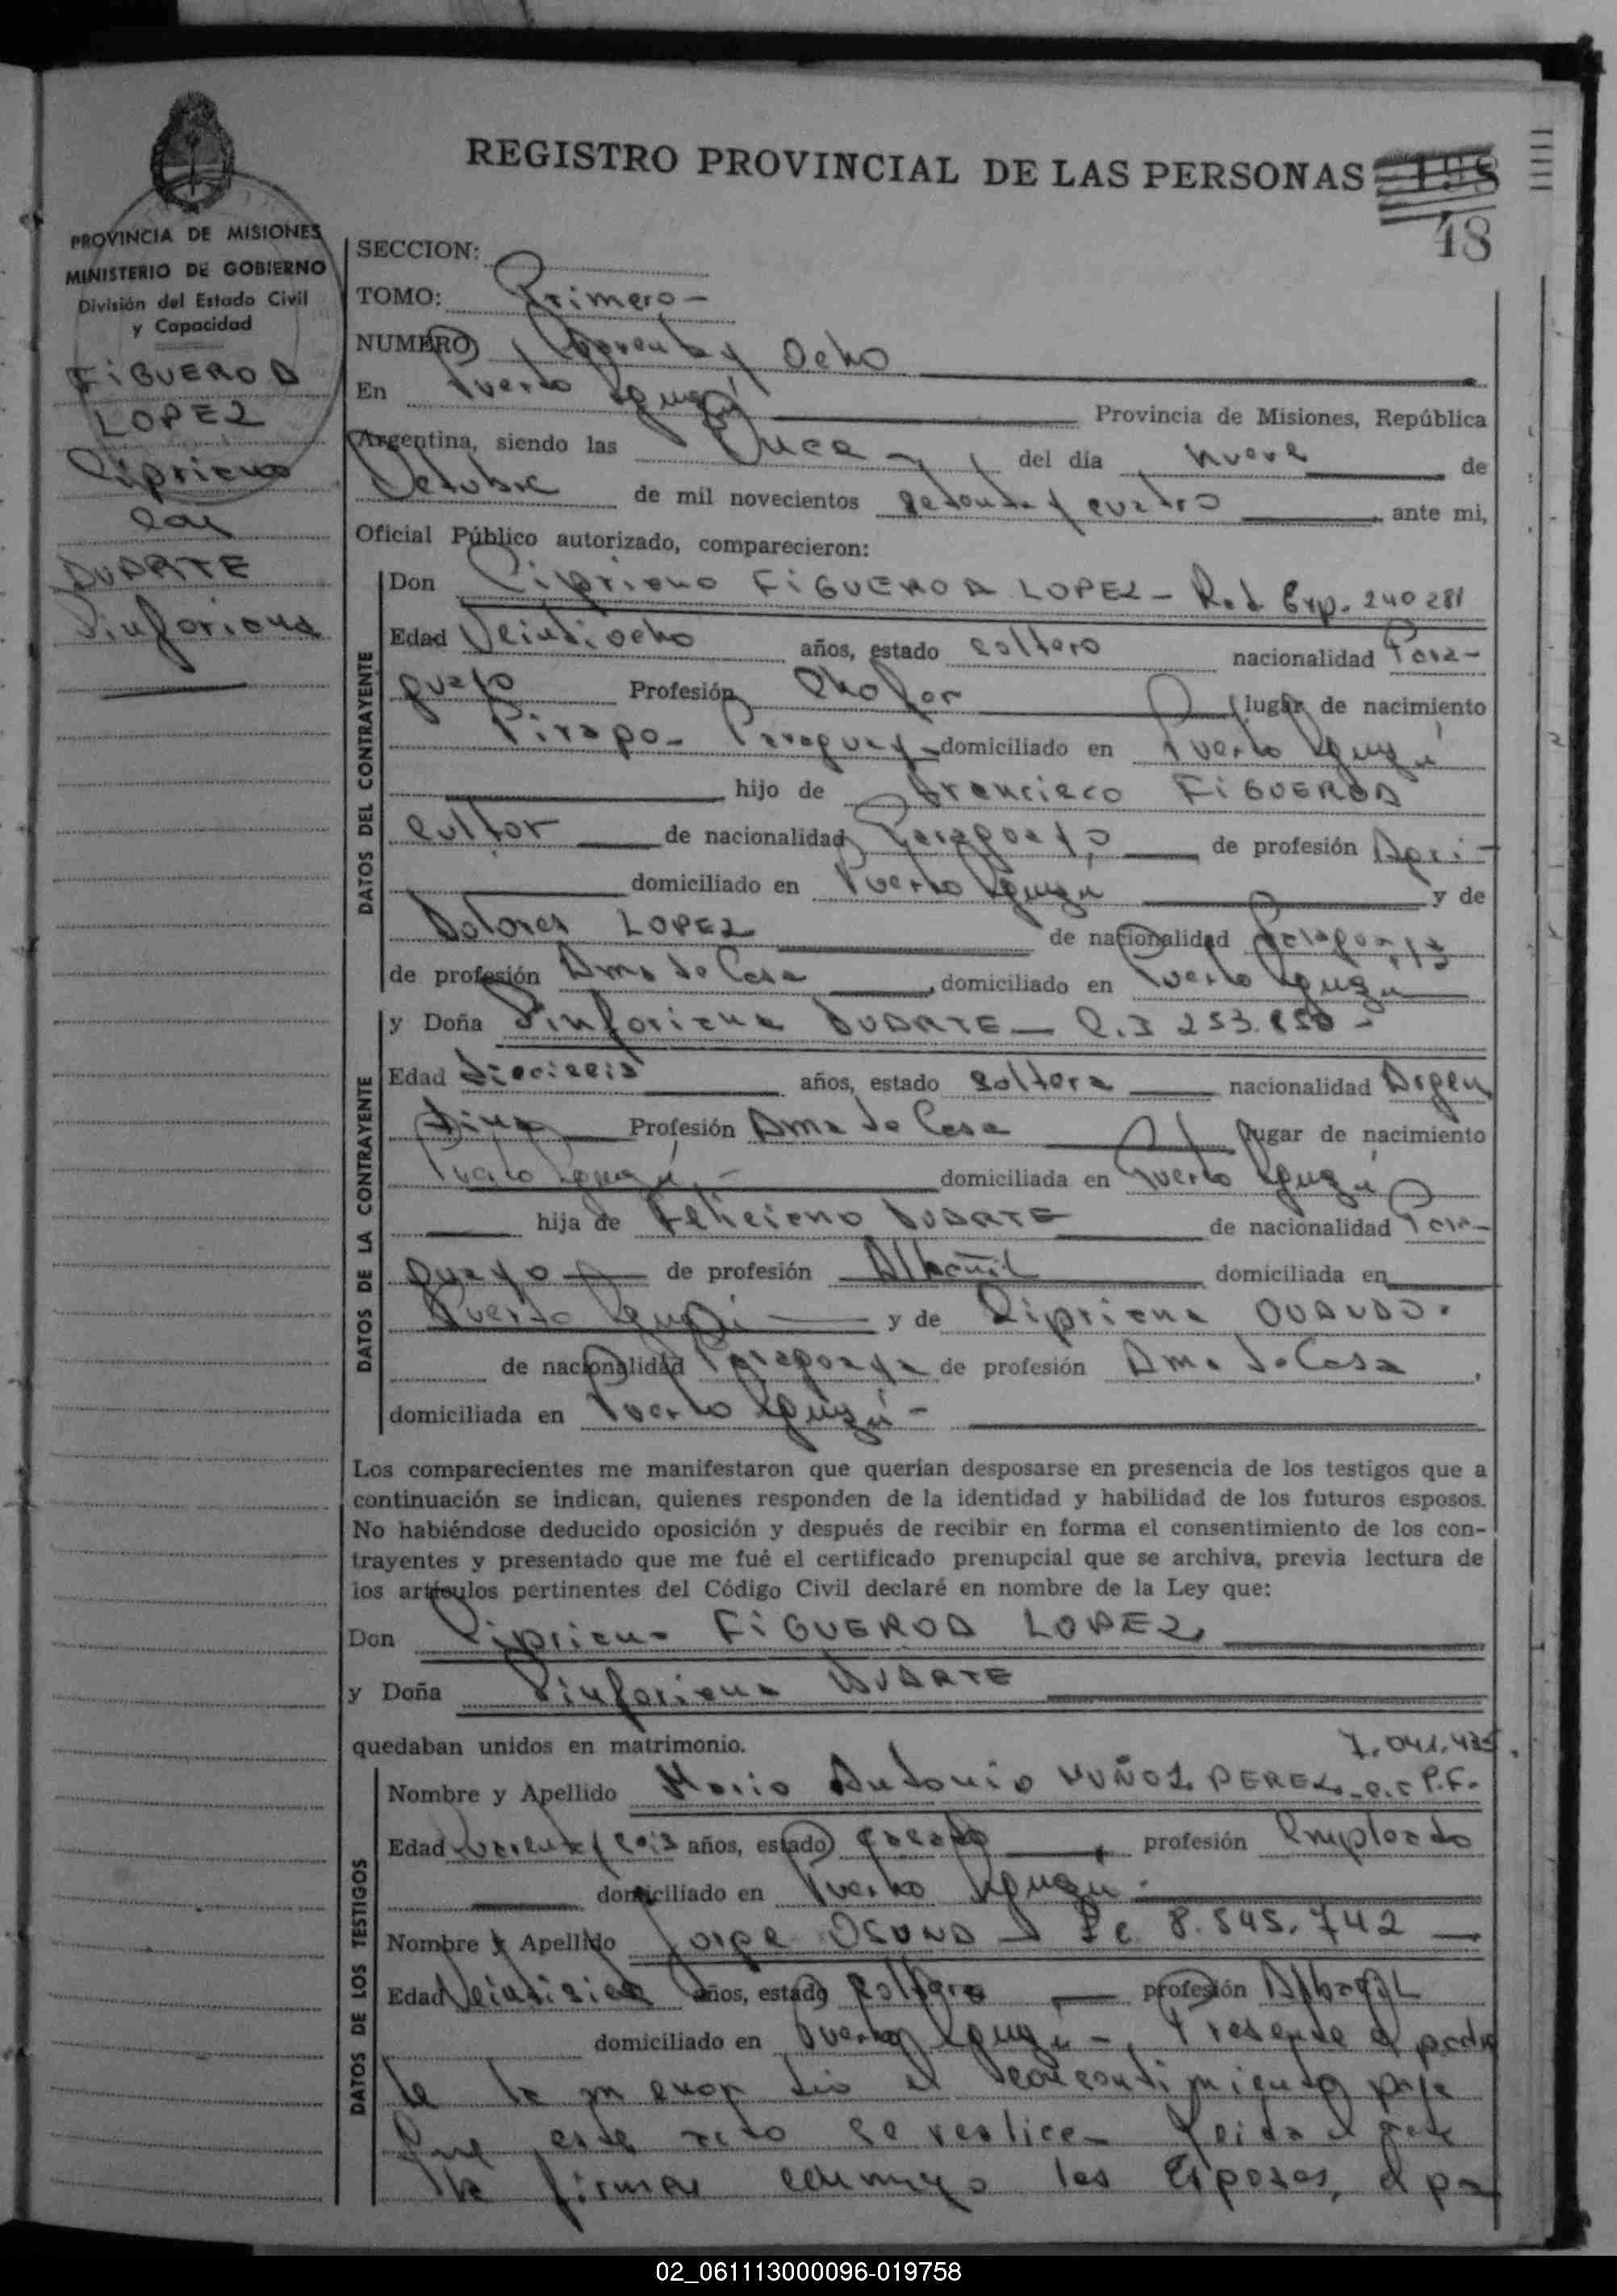 REGISTRO PROVINCIAL DE LAS PERSONAS 198
48
PROVINCIA DE MISIONES
MINISTERIO DE GOBIERNO
División del Estado Civil
y Capacidad
FIGUEROA
LOPEZ
Cipriano
con
DUARTE
Sinforiana
SECCION:
TOMO: Primero-
NUMERO Cuarenta y Ocho
En Puerto Iguazú Provincia de Misiones, República
Argentina, siendo las Once del día nueve de
Octubre de mil novecientos setenta y cuatro ante mi,
Oficial Público autorizado, comparecieron:
DATOS DEL CONTRAYENTE
Don Cipriano FIGUEROA LOPEZ - Rad. Exp. 240281
Edad Veintiocho años, estado soltero nacionalidad Para-
guayo Profesión Chofer lugar de nacimiento
Pirapo- Paraguay domiciliado en Puerto Iguazú
hijo de Francisco FIGUEROA
cultor de nacionalidad Paraguayo de profesión Agri-
domiciliado en Puerto Iguazú y de
Dolores LOPEZ de nacionalidad Paraguaya
de profesión Ama de Casa, domiciliado en Puerto Iguazú
DATOS DE LA CONTRAYENTE
y Doña Sinforiana DUARTE - C.I 253.
Edad Dieciseis años, estado soltera nacionalidad Argen
tina Profesión Ama de Casa lugar de nacimiento
Puerto Iguazú,- domiciliada en Puerto Iguazú
hija de Feliciano DUARTE de nacionalidad Para-
guayo de profesión Albañil domiciliada en
Puerto Iguazú y de Cipriana OVANDO.
de nacionalidad Paraguaya de profesión Ama de Casa,
domiciliada en Puerto Iguazú-
Los comparecientes me manifestaron que querían desposarse en presencia de los testigos que a
continuación se indican, quienes responden de la identidad y habilidad de los futuros esposos.
No habiéndose deducido oposición y después de recibir en forma el consentimiento de los con-
trayentes y presentado que me fué el certificado prenupcial que se archiva, previa lectura de
los artículos pertinentes del Código Civil declaré en nombre de la Ley que:
Don Cipriano FIGUEROA LOPEZ
y Doña Sinforiana DUARTE
quedaban unidos en matrimonio.
7.041.425.
DATOS DE LOS TESTIGOS
Nombre y Apellido Mario Antonio MUÑOZ PEREZ - C.I P.F.
Edad Cuarenta y seis años, estado casado profesión Empleado
domiciliado en Puerto Iguazú.
Nombre y Apellido Jorge OSUNA - L.E. 8.545.742
Edad años, estado soltero profesión Albañil
domiciliado en Puerto Iguazú-, Presente el padre
de la menor dio el consentimiento para
que este acto se realice- Leida el acta
la firman conmigo los Esposos, el pa
02_061113000096-019758